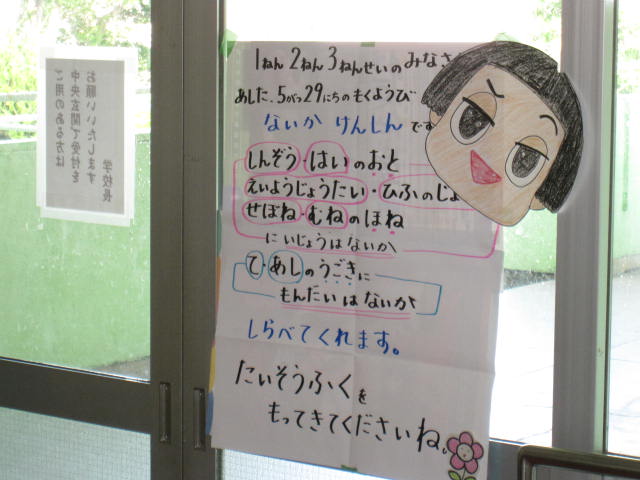 1ねん 2ねん 3ねんせいの みなさ
あした、5がつ29にちの もくようび
ないか けんしん です
しんぞう・はいのおと
えいようじょうたい・ひふのじょ
せぼね・むねのほね
にいじょうはないか
て・あしのうごきに
もんだいはないか
しらべてくれます。
たいそうふくを
もってきてくださいね。
ご用のある方は
中央玄関で受付を
お願いいたします
学校長